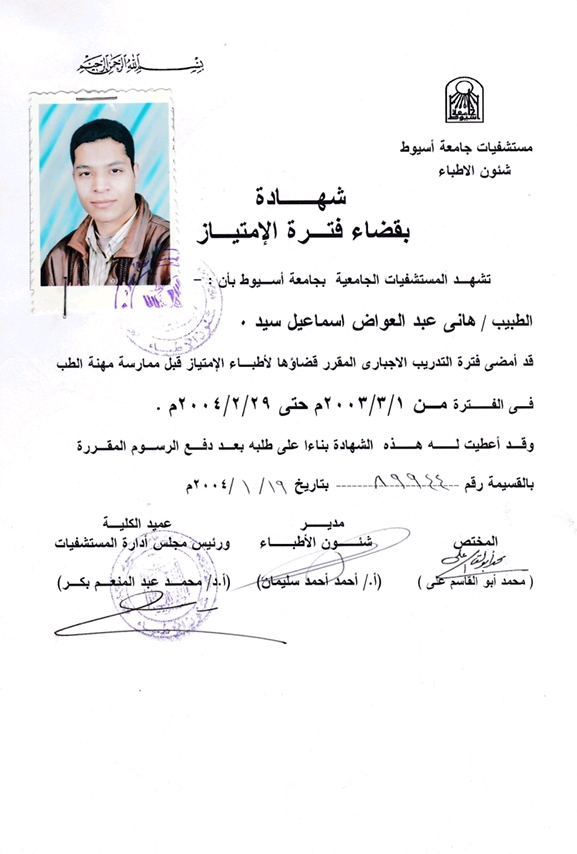 بسم الله الرحمن الرحيم
جامعة
أسيوط
مستشفيات جامعة أسيوط
شئون الاطباء
شهـــــادة
بقضاء فتـرة الإمتيـاز
تشهـد المستشفيات الجامعية بجامعة أسـيوط بأن : -
الطبيب / هانى عبد العواض اسماعيل سيد ٠
قد أمضى فترة التدريب الاجبارى المقرر قضاؤها لأطباء الإمتياز قبل ممارسة مهنة الطب
فـى الفـــترة مـن ٢٠٠٣/٣/١م حتى ٢٠٠٤/٢/٢٩م .
وقـد أعطيت لــه هــذه الشهادة بناءا على طلبه بعـد دفـع الرسوم المقررة
بالقسيمة رقم ---- ٨٩٩٤٤ ---- بتاريخ ١٩/ ١ /٢٠٠٤م
المختص
مديـــر
شئـــون الأطبـاء
عميد الكلية
ورئيس مجلس ادارة المستشفيات
محمد أبو القاسم على
( محمد أبو القاسم على )
(أ./ أحمد أحمد سليمان)
(أ.د/ محمـد عبد المنعم بكـر)